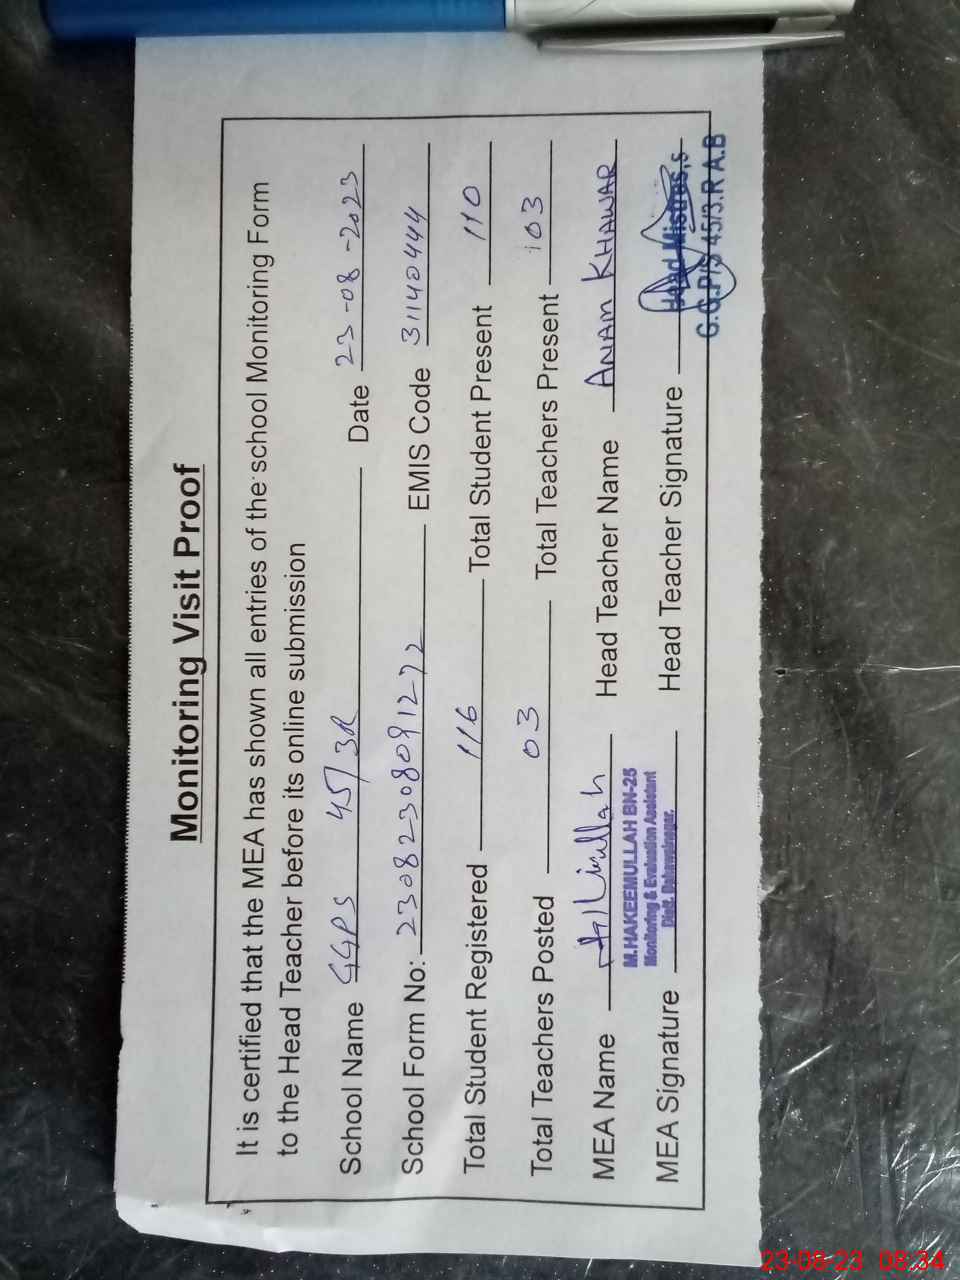 Monitoring Visit Proof
It is certified that the MEA has shown all entries of the school Monitoring Form
to the Head Teacher before its online submission
School Name GGPS 45/3R Date 23-08-2023
School Form No: 23082308091272 EMIS Code 31140444
Total Student Registered 116 Total Student Present 110
Total Teachers Posted 03 Total Teachers Present 03
MEA Name Head Teacher Name ANAM KHAWAR
M.HAKEEMULLAH BN-25
Monitoring & Evaluation Assistant
Distt. Bahawalnagar.
MEA Signature Head Teacher Signature
Head Mistres,s
G.G.P/S 45/3.R A.B
23-08-23 08:34